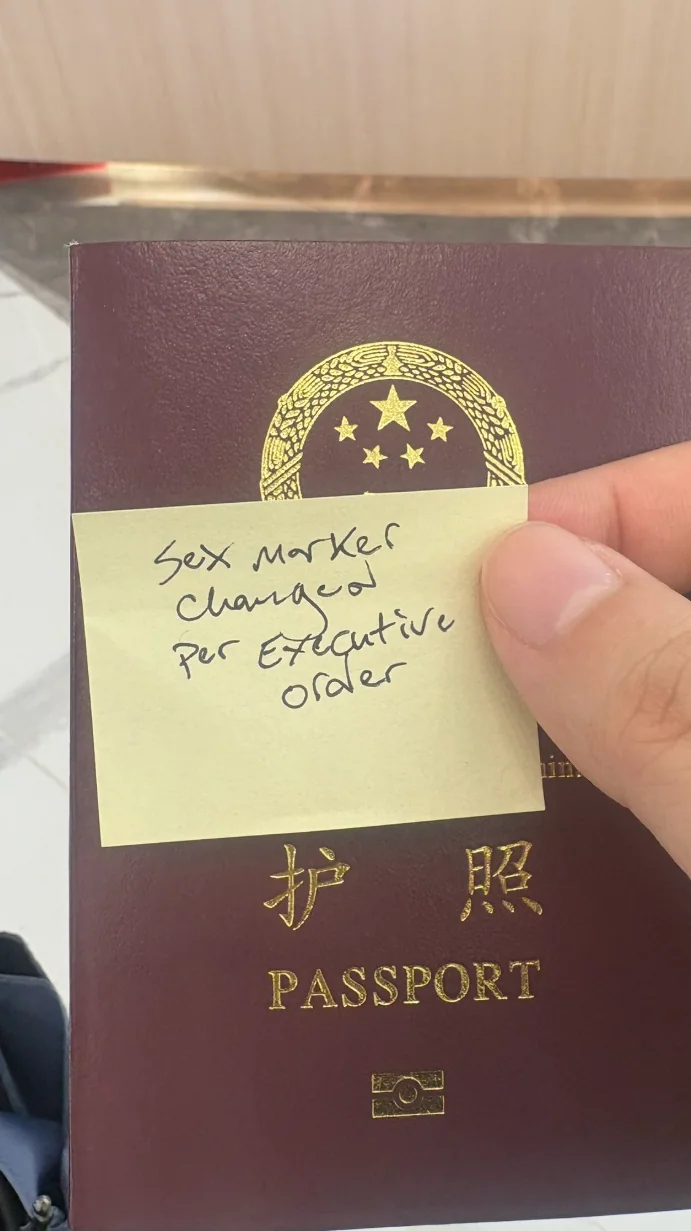 Sex Marker
Changed
Per Executive
Order
护 照
PASSPORT